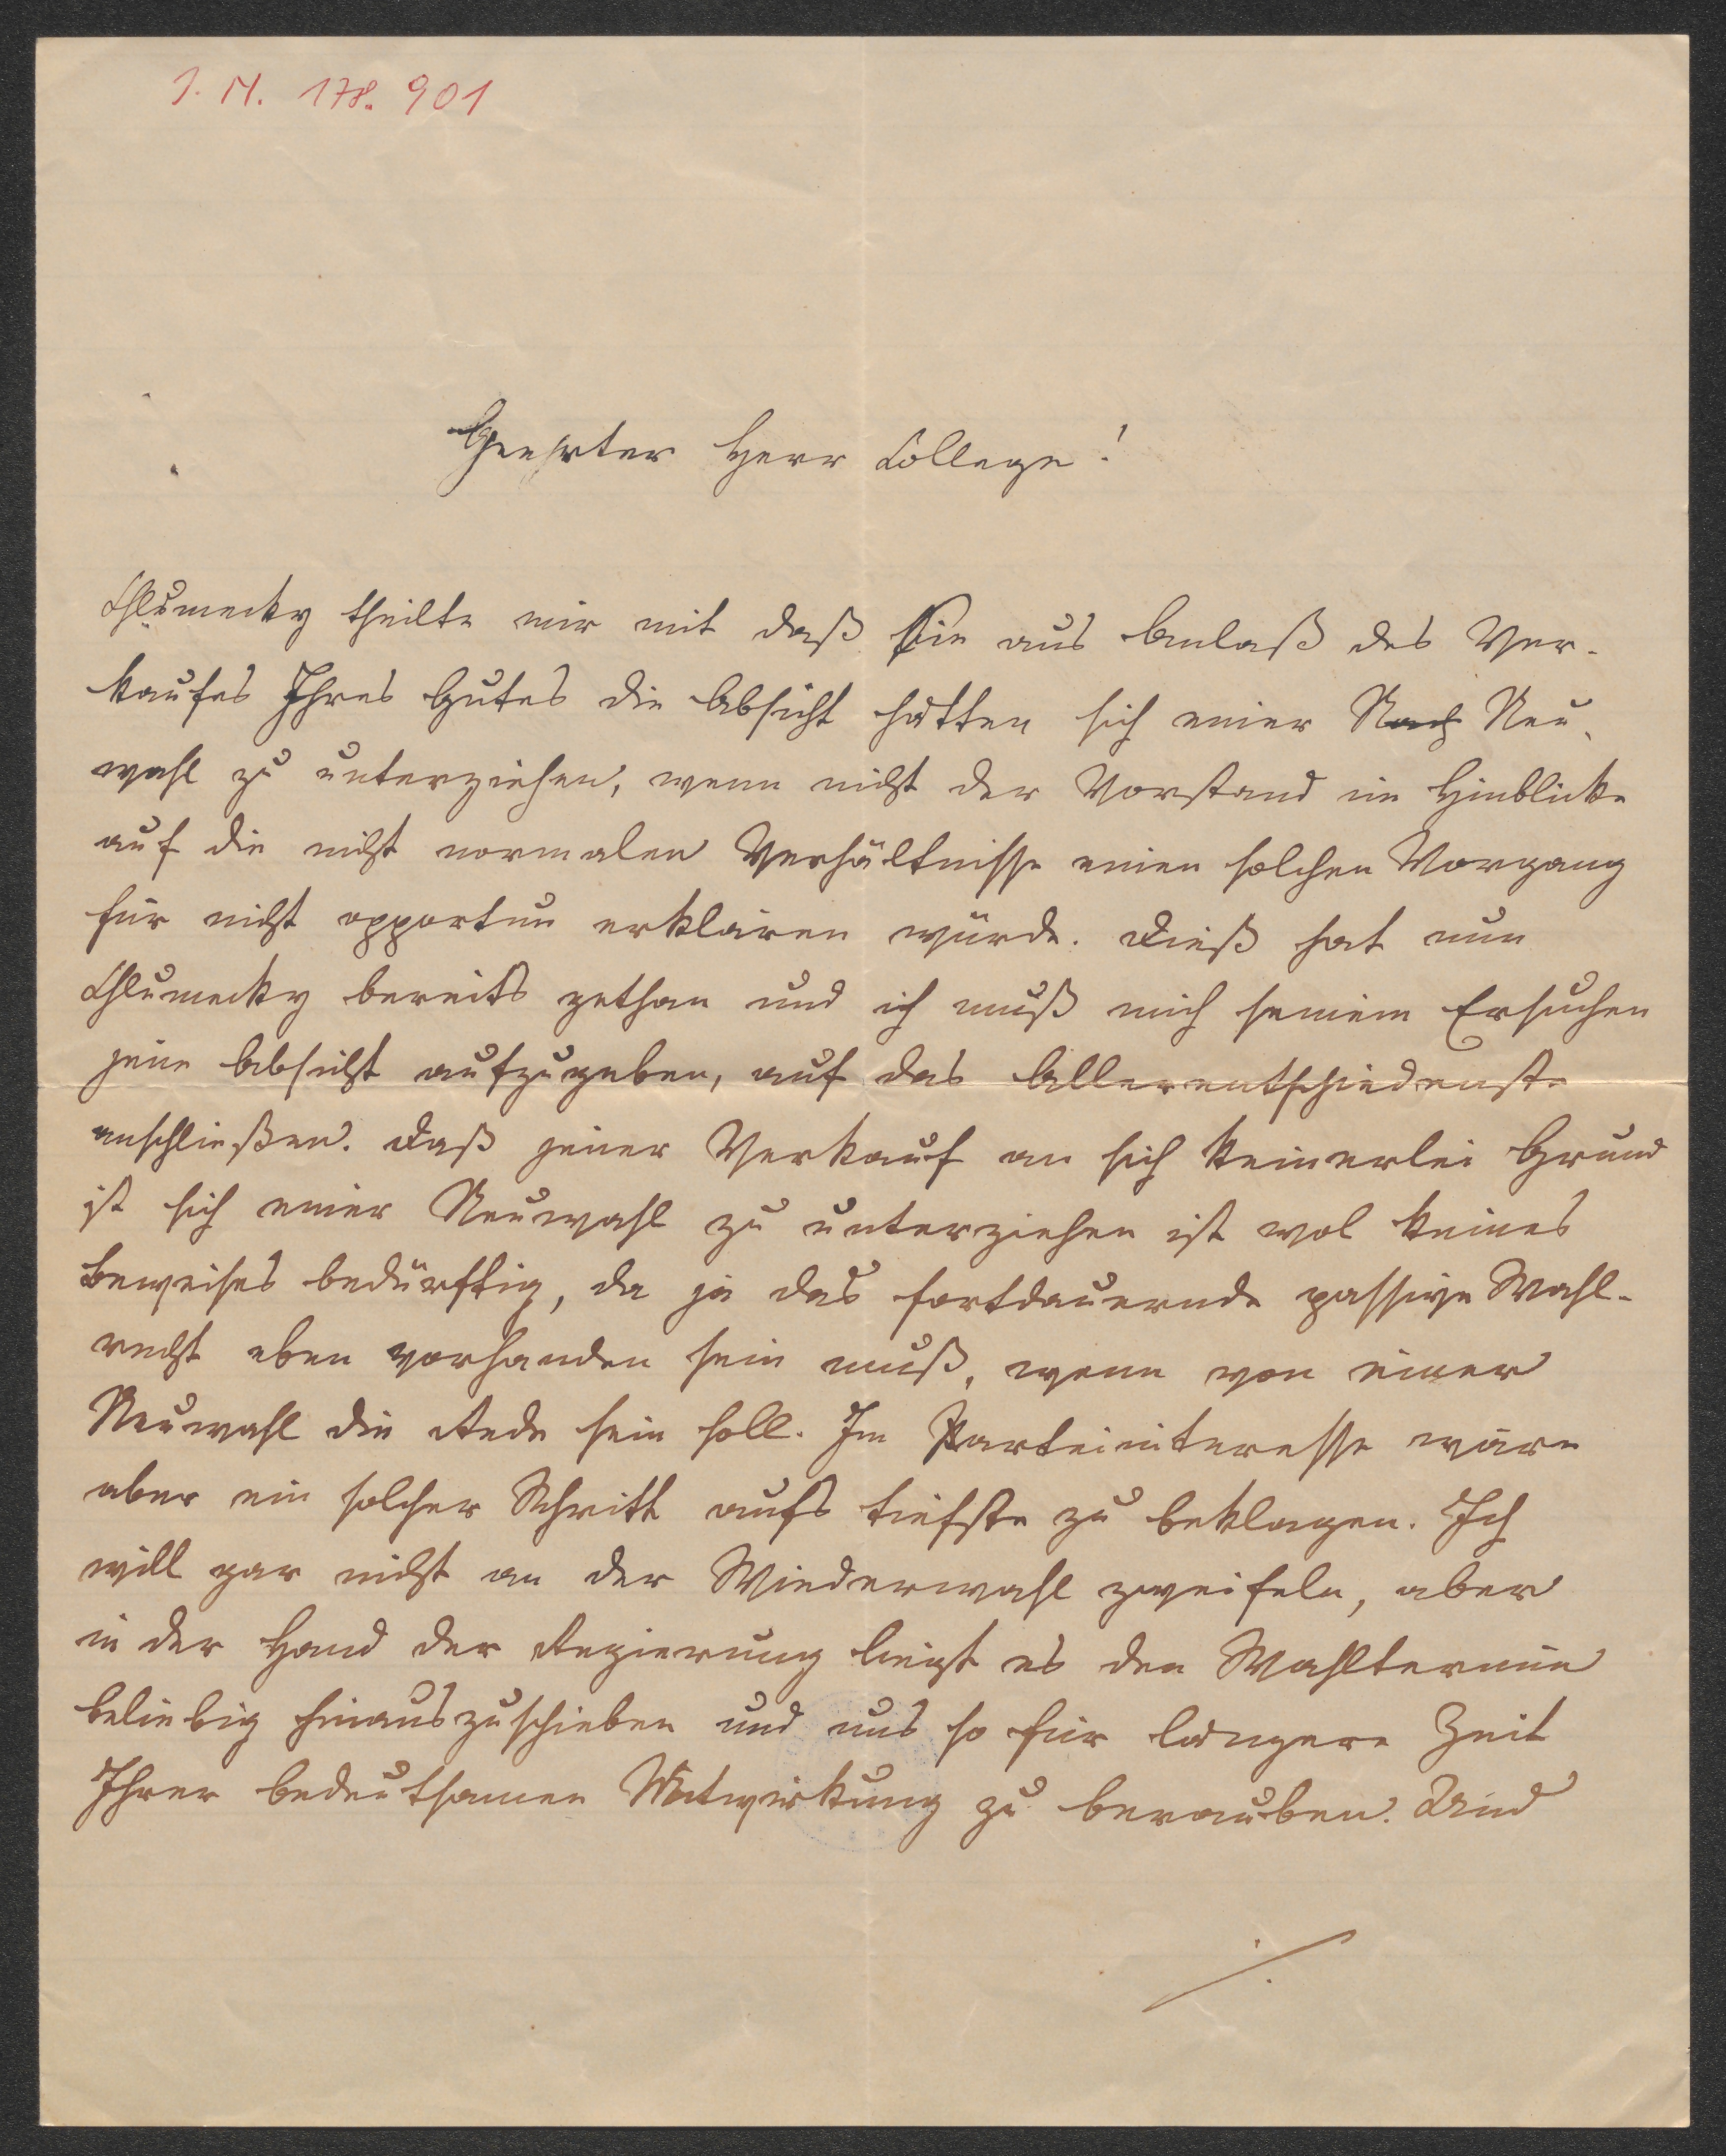 J. N. 178.901
Geehrter Herr College!
Chlumecky theilte mir mit daß Sie aus Anlaß des Ver-
kaufes Ihres Gutes die Absicht hätten sich einer Nach Neu-
wahl zu unterziehen, wenn nicht der Vorstand im Hinblicke
auf die nicht normalen Verhältnisse einen solchen Vorgang
für nicht opportun erklären würde. Dieß hat nun
Chlumecky bereits gethan und ich muß mich seinem Ersuchen
jene Absicht aufzugeben, auf das Allerentschiedenste
anschließen. Daß jener Verkauf an sich keinerlei Grund
ist sich einer Neuwahl zu unterziehen ist wol keines
Beweises bedürftig, da ja das fortdauernde passive Wahl-
recht eben vorhanden sein muß, wenn von einer
Neuwahl die Rede sein soll. Im Parteiinteresse wäre
aber ein solcher Schritt aufs tiefste zu beklagen. Ich
will gar nicht an der Wiederwahl zweifeln, aber
in der Hand der Regierung liegt es den Wahltermin
beliebig hinauszuschieben und uns so für längere Zeit
Ihrer bedeutsamen Mitwirkung zu berauben. Und
./.